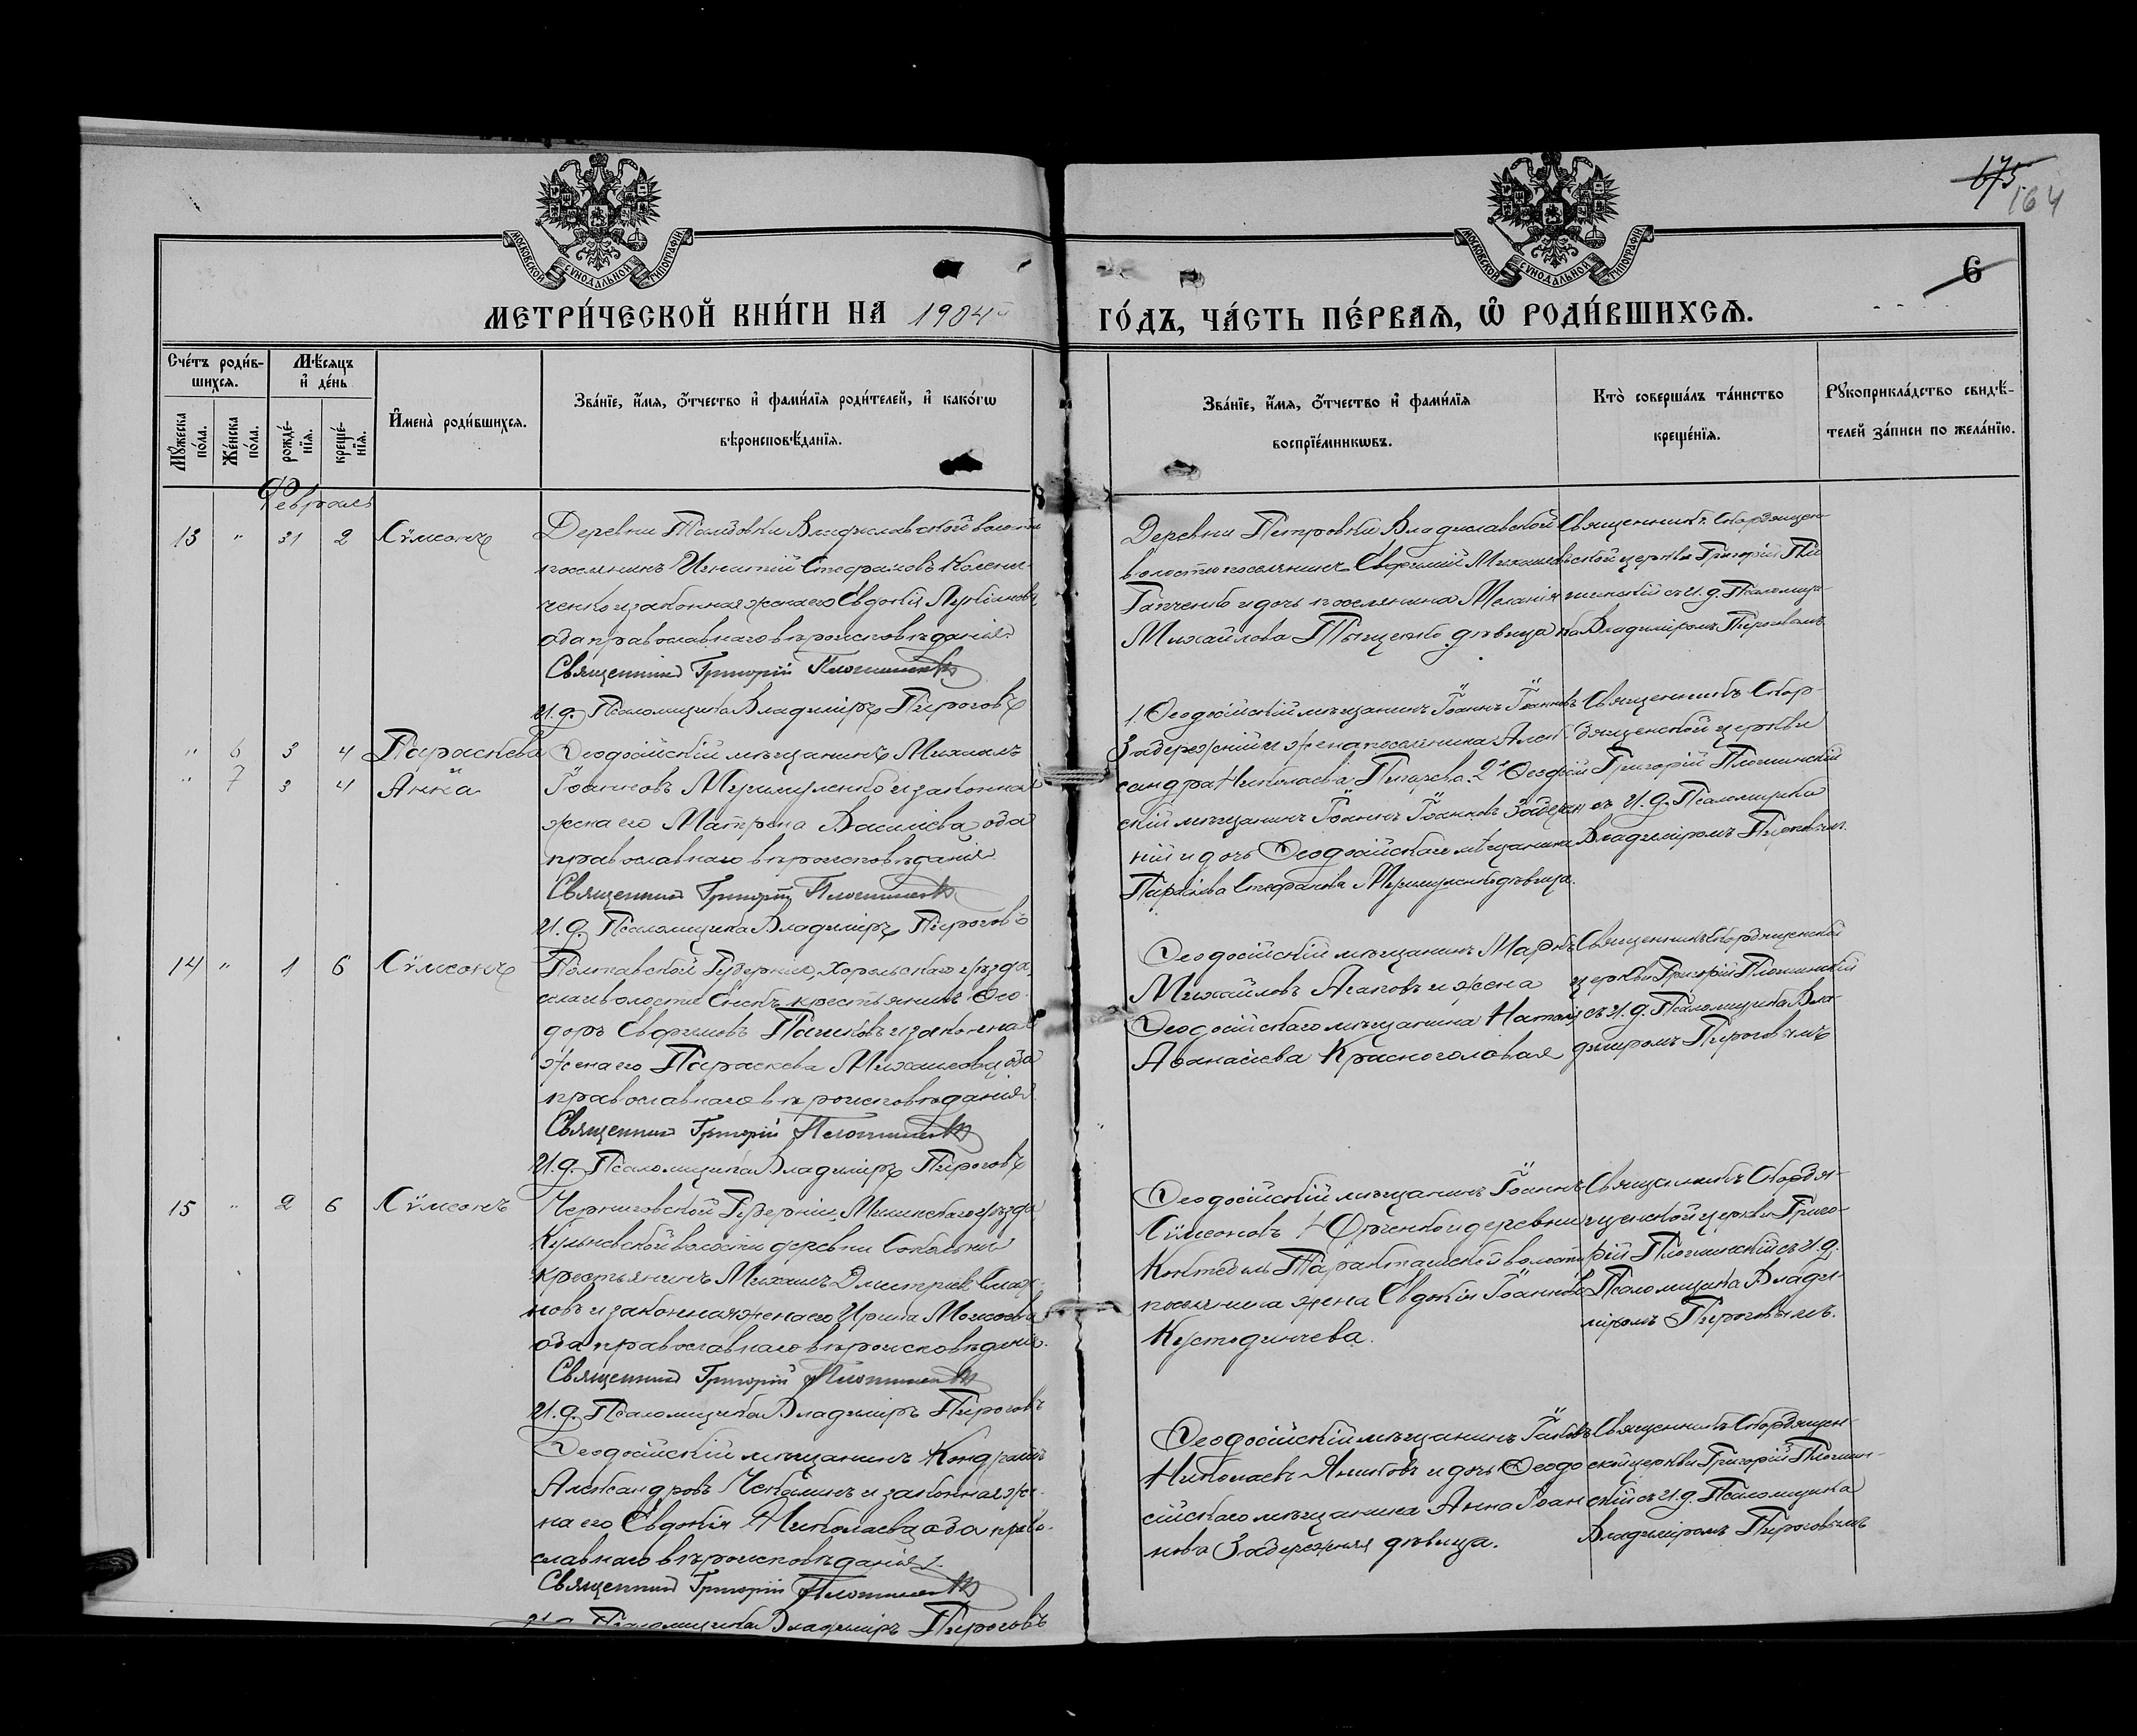 675
164
МОСКОВСКОЙ СѴНОДАЛЬНОЙ ТИПОГРАФІИ
МОСКОВСКОЙ СѴНОДАЛЬНОЙ ТИПОГРАФІИ
6
МЕТРИ́ЧЕСКОЙ КНИ́ГИ НА 1904 ГО́ДЪ, ЧА́СТЬ ПЕ́РВАѦ, Ѡ РОДИ́ВШИХСѦ.
Сче́тъ роди́в-
шихся.
Мѣ́сяцъ
и де́нь
Мꙋ́жеска
по́ла.
Же́нска
по́ла.
рожде́-
нїя.
креще́-
нїя.
Имена̀ роди́вшихся.
Зва́нїе, и́мя, о́тчество и фами́лїя роди́телей, и како́гѡ
вѣроисповѣ́данїя.
Зва́нїе, и́мя, о́тчество и фами́лїя
воспрїе́мникѡвъ.
Кто̀ соверша́лъ та́инство
креще́нїя.
Рꙋкоприкла́дство свидѣ́-
телей за́писи по жела́нїю.
Февраль
13 " 31 2 Сѵмеонъ
Деревни Владиславской волости
поселянинъ Игнатій Стефановъ Колени-
ченко и законная жена его Евдокія
оба православнаго вѣроисповѣданія.
Священникъ Григорій Плотинскій
И. д. Псаломщика Владиміръ Пироговъ
Деревни Петровки Владиславской
волости поселянинъ Евфимій Михаиловъ
Гапченко и дочь поселянина Меланія
Михайлова Тыщенко дѣвица
Священникъ Скорбящен-
ской церкви Григорій Пло-
тинскій съ И. д. Псаломщи-
ка Владиміромъ Пироговымъ
" 6 3 4 Параскева
" 7 3 4 и Анна
Ѳеодосійскій мѣщанинъ Михаилъ
Іоанновъ и законная
жена его Матрона Василіева оба
православнаго вѣроисповѣданія.
Священникъ Григорій Плотинскій
И. д. Псаломщика Владиміръ Пироговъ
1. Ѳеодосійскій мѣщанинъ Іоаннъ Іоанновъ
Задережній и жена поселянина Алек-
сандра Николаева 2. Ѳеодосій-
скій мѣщанинъ Іоаннъ Іоанновъ Задереж-
ній и дочь Ѳеодосійскаго мѣщанина
Стефанова дѣвица.
Священникъ Скор-
бященской церкви
Григорій Плотинскій
съ И. д. Псаломщика
Владиміромъ Пироговымъ
14 " 1 6 Сѵмеонъ
Полтавской Губерніи, Хорольскаго уѣзда,
крестьянинъ Ѳео-
доръ Евфимовъ и законная
жена его Параскева Михаилова оба
православнаго вѣроисповѣданія.
Священникъ Григорій Плотинскій
И. д. Псаломщика Владиміръ Пироговъ
Ѳеодосійскій мѣщанинъ Маркъ
Михайловъ Агаповъ и жена
Ѳеодосійскаго мѣщанина Наталія
Аѳанасіева Красноголовая
Священникъ Скорбященской
церкви Григорій Плотинскій
съ И. д. Псаломщика Вла-
диміромъ Пироговымъ
15 " 2 6 Сѵмеонъ
Черниговской Губерніи, Мглинскаго уѣзда
волости деревни
крестьянинъ Михаилъ Дмитріев
и законная жена его Ирина
оба православнаго вѣроисповѣданія.
Священникъ Григорій Плотинскій
И. д. Псаломщика Владиміръ Пироговъ
Ѳеодосійскій мѣщанинъ Іоаннъ
Сѵмеоновъ и деревни
Коктебель Таракташской волости
поселянина жена Евдокія Іоаннова
Кустодинчева.
Священникъ Скорбя-
щенской церкви Григо-
рій Плотинскій съ И. д.
Псаломщика Влади-
міромъ Пироговымъ.
Ѳеодосійскій мѣщанинъ Кондратій
Александровъ Чекалинъ и законная же-
на его Евдокія Николаева оба право-
славнаго вѣроисповѣданія.
Священникъ Григорій Плотинскій
И. д. Псаломщика Владиміръ Пироговъ
Ѳеодосійскій мѣщанинъ Іаковъ
Николаевъ Яниковъ и дочь Ѳеодо-
сійскаго мѣщанина Анна Іоан-
нова Задережняя дѣвица.
Священникъ Скорбящен-
ской церкви Григорій Плотин-
скій съ И. д. Псаломщика
Владиміромъ Пироговымъ